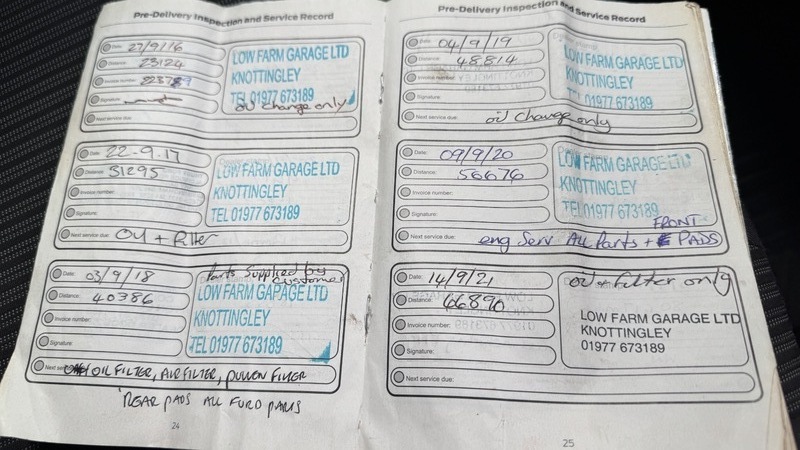 Pre-Delivery Inspection and Service Record
Date: 27/9/16
Distance: 23124
Invoice number: 223789
Signature:
Next service due:
LOW FARM GARAGE LTD
KNOTTINGLEY
TEL 01977 673189
oil change only
Date: 22-9-17
Distance: 31295
Invoice number:
Signature:
Next service due: Oil + Filter
LOW FARM GARAGE LTD
KNOTTINGLEY
TEL 01977 673189
Date: 03/9/18
Distance: 40386
Invoice number:
Signature:
Parts supplied by
customer
LOW FARM GARAGE LTD
KNOTTINGLEY
TEL 01977 673189
Next OIL FILTER, AIR FILTER, POLLEN FILTER
REAR PADS ALL FORD PARTS
24
Pre-Delivery Inspection and Service Record
Date: 04/9/19
Distance: 48814
Invoice number:
Signature:
Next service due: oil change only
LOW FARM GARAGE LTD
KNOTTINGLEY
TEL 01977 673189
Date: 09/9/20
Distance: 56676
Invoice number:
Signature:
LOW FARM GARAGE LTD
KNOTTINGLEY
TEL 01977 673189
FRONT
Next service due: eng Serv All Parts + PADS
Date: 14/9/21
Distance: 66890
Invoice number:
Signature:
Next service due:
oil + filter only
LOW FARM GARAGE LTD
KNOTTINGLEY
01977 673189
25